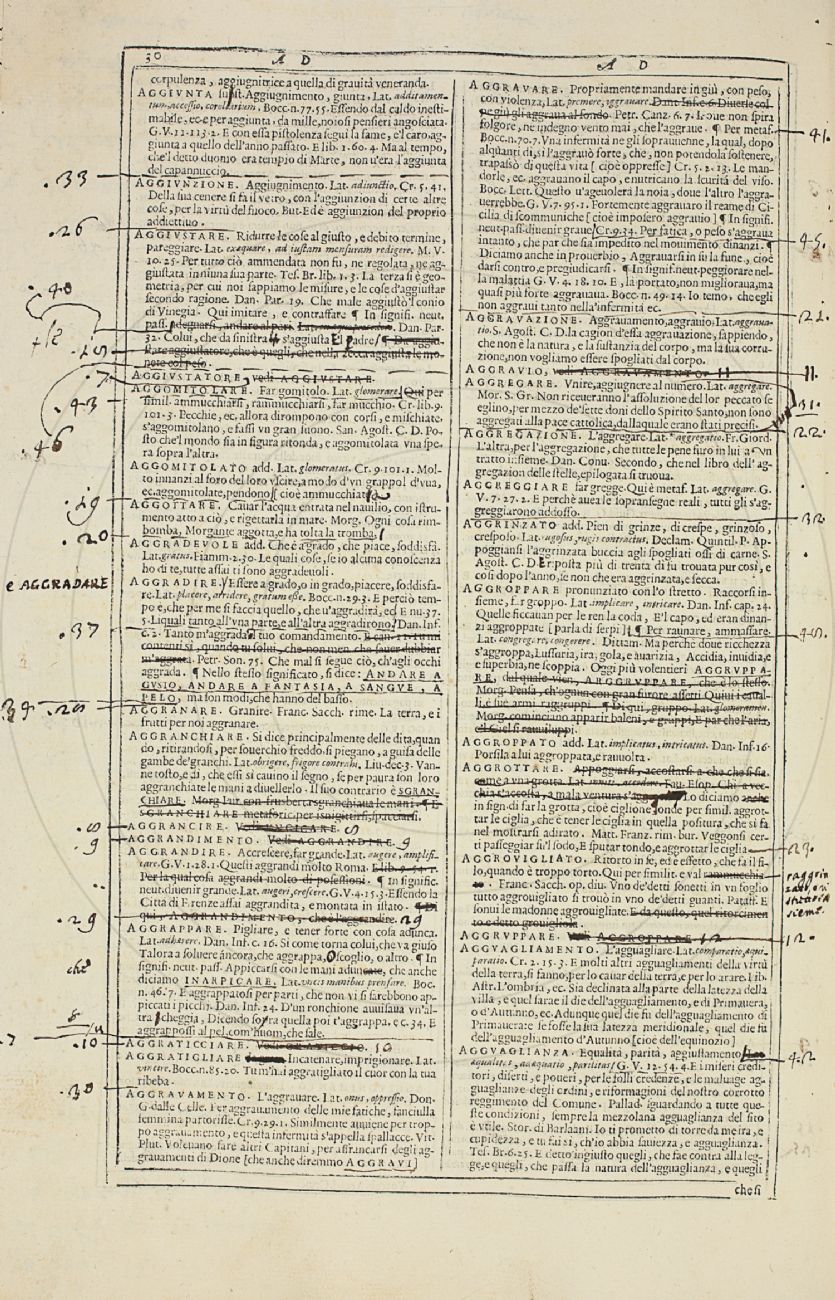 30 A D
corpulenza, aggiugnitrice a quella di grauità veneranda.
AGGIVNTA sust. Aggiugnimento, giunta, Lat. additamen-
tum, accessio, corollarium, Bocc.n.77.55. Essendo dal caldo inesti-
mabile, ec. e per aggiunta, da mille, noiosi pensieri angosciata.
G.V.11.113.2. E con essa pistolenza seguì la fame, e'l caro, ag-
giunta a quello dell'anno passato. E lib. 1.60.4. Ma al tempo,
che'l detto duomo era tempio di Marte, non u'era l'aggiunta
del capannuccio.
.33
AGGIVNZIONE. Aggiugnimento. Lat. adiunctio. Cr. 5.41.
Della sua cenere si fa il vetro, con l'aggiunzion di certe altre
cose, per la virtù del fuoco. But. Ed è aggiunzion del proprio
addiettiuo.
.26
AGGIVSTARE. Ridurre le cose al giusto, e debito termine,
pareggiare. Lat. exaequare, ad iustam mensuram redigere. M.V.
10.25. Per tutto ciò, ammendata non fu, ne regolata, ne ag-
giustata in niuna sua parte. Tes. Br. lib. 1.3. La terza si è geo-
metria, per cui noi sappiamo le misure, e le cose d'aggiustar
secondo ragione. Dan. Par. 19. Che male aggiustò'l conio
di Vinegia. Qui imitare, e contraffare ¶ In signifi. neut.
pass. Dan. Par.
32. Colui, che da sinistra s'aggiusta Al Padre
AGGIVSTATORE, vedi AGGIVSTARE.
.43
AGGOMITOLARE. Far gomitolo. Lat. glomerare. Qui per
simil. ammucchiarsi, rammucchiarsi, far mucchio. Cr. lib. 9.
101.3. Pecchie, ec. allora dirompono con corsi, e mischiate
s'aggomitolano, e fassi vn gran suono. San. Agost. C. D. Po-
sto che'l mondo sia in figura ritonda, e aggomitolata vna spe-
ra sopra l'altra.
.46
AGGOMITOLATO add. Lat. glomeratus. Cr. 9.101.1. Mol-
to innanzi al foro del loro vscire, a modo d'vn grappol d'vua,
ec. aggomitolate, pendono [cioè ammucchiate
.19
AGGOTTARE. Cauar l'acqua entrata nel nauilio, con istru-
mento atto a ciò, e rigettarla in mare. Morg. Ogni cosa rim-
bomba, Morgante aggotta, e ha tolta la tromba.
.20
AGGRADEVOLE add. Che è a grado, che piace, soddisfà.
Lat. gratus. Fiamm. 2.30. Le quali cose, se io alcuna conoscenza
ho di te, tutte assai ti sono aggradeuoli.
e AGGRADARE
AGGRADIRE. Essere a grado, o in grado, piacere, soddisfa-
re. Lat. placere, arridere, gratum esse. Bocc.n.29.3. E perciò tem-
po è, che per me si faccia quello, che u'aggradirà, ed E nu. 37.
5. Liquali tanto all'vna parte, e all'altra aggradirono. Dan. Inf.
.37
c. 2. Tanto m'aggrada'l tuo comandamento.
Petr. Son. 75. Che mal si segue ciò, ch'agli occhi
aggrada. ¶ Nello stesso significato, si dice: ANDARE A
GVSTO, ANDARE A FANTASIA, A SANGVE, A
PELO, ma son modi, che hanno del basso.
39 .20
AGGRANARE. Granire. Franc. Sacch. rime. La terra, e i
frutti per noi aggranare.
AGGRANCHIARE. Si dice principalmente delle dita, quan-
do, ritirandosi, per souerchio freddo, si piegano, a guisa delle
gambe de' granchi. Lat. obrigere, frigore contrahi. Liu. dec. 3. Van-
ne tosto, e dì, che essi si cauino il segno, se per paura son loro
aggranchiate le mani a diuellerlo. Il suo contrario è SGRAN-
CHIARE. Morg.
SGRANCHIARE metafor.
AGGRANCIRE. Vedi
9
AGGRANDIMENTO. Vedi AGGRANDIRE. 9
AGGRANDIRE. Accrescere, far grande. Lat. augere, amplifi-
care. G.V. 1.28.1. Questi aggrandì molto Roma.
Per la qual cosa aggrandì molto di posessioni. ¶ In signific.
neut. diuenir grande. Lat. augeri, crescere. G.V. 4.15.3. Essendo la
Città di Firenze assai aggrandita, e montata in istato. ¶ Di
qui, AGGRANDIMENTO, cioè l'aggrandire. 29
.29
AGGRAPPARE. Pigliare, e tener forte con cosa adunca.
Lat. adhaerere. Dan. Inf. c. 16. Si come torna colui, che va giuso
Talora a soluere áncora, che aggrappa, O scoglio, o altro. ¶ In
che
signifi. neut. pass. Appiccarsi con le mani aduncate, che anche
diciamo INARPICARE. Lat. vncis manibus prensare. Boc.
n. 46.7. E aggrappatosi per parti, che non vi si sarebbono ap-
piccati i picchi. Dan. Inf. 24. D'un ronchione auuisaua vn'al-
tra scheggia, Dicendo sopra quella poi t'aggrappa. e c. 34. E
aggrappossi al pel, com'huom, che sale.
.10
AGGRATICCIARE. Vedi 10
AGGRATIGLIARE Incatenare, imprigionare. Lat.
vincire. Bocc.n.85.20. Tu m'hai aggratigliato il cuor con la tua
ribeba.
.30
AGGRAVAMENTO. L'aggrauare. Lat. onus, oppressio. Don.
G. dalle Celle. Per aggrauamento delle mie fatiche, fanciulla
femmina partorisse. Cr. 9.29.1. Similmente auuiene per trop-
po aggrauamento, e questa infermità s'appella spallacce. Vit.
Plut. Voleuano fare altri Capitani, per affrancarsi degli ag-
grauamenti di Dione [che anche diremmo AGGRAVI]
A D
AGGRAVARE. Propriamente mandare in giù, con peso,
con violenza, Lat. premere, aggrauare. Dant. Inf. c. 6. Diuerse col-
pe giù gli aggraua al fondo. Petr. Canz. 6.7. Ioue non spira
folgore, ne indegno vento mai, che l'aggraue. ¶ Per metaf.
41.
Bocc.n.70.7. Vna infermità ne gli soprauuenne, la qual, dopo
alquanti dì, si l'aggrauò forte, che, non potendola sostenere,
trapassò di questa vita [cioè oppresse] Cr. 5.2.13. Le man-
dorle, ec. aggrauano il capo, e nutricano la scurità del viso.
Bocc. Lett. Questo u'ageuolerà la noia, doue l'altro l'aggra-
uerrebbe. G.V. 7.95.1. Fortemente aggrauaro il reame di Ci-
cilia di scommuniche [cioè imposero aggrauio] ¶ In signifi.
neut. pass. diuenir graue Cr. 9.34. Per fatica, o peso s'aggraua
intanto, che par che sia impedito nel mouimento dinanzi. ¶
45.
Diciamo anche in prouerbio, Aggrauarsi in su la fune, cioè
darsi contro, e pregiudicarsi. ¶ In signif. neut. peggiorare nel-
la malattia G.V. 4.18.10. E, là portato, non migliorau a, ma
quasi più forte aggrauaua. Bocc. n. 49.14. Io temo, che egli
non aggraui tanto nella infermità ec.
21.
AGGRAVAZIONE. Aggrauamento, aggrauio, Lat. aggraua-
tio. S. Agost. C. D. la cagion d'essa aggrauazione, sappiendo,
che non è la natura, e la sustanzia del corpo, ma la sua corru-
zione, non vogliamo essere spogliati dal corpo.
AGGRAVIO, vedi AGGRAVAMENTO 11
11.
AGGREGARE. Vnire, aggiugnere al numero. Lat. aggregare.
Mor. S. Gr. Non riceueranno l'assoluzione del lor peccato se
eglino, per mezzo de' sette doni dello Spirito Santo, non sono
aggregati alla pace cattolica, dalla quale erano stati precisi.
31.
22.
AGGREGAZIONE. L'aggregare. Lat. aggregatio. Fr. Giord.
L'altra, per l'aggregazione, che tutte le pene furo in lui a vn
tratto insieme. Dan. Conu. Secondo, che nel libro dell'ag-
gregazion delle stelle, epilogata si truoua.
AGGREGGIARE far gregge. Qui è metaf. Lat. aggregare. G.
V. 7.27.2. E perchè auea le sopransegne reali, tutti gli s'ag-
greggiarono addosso.
32.
AGGRINZATO add. Pien di grinze, di crespe, grinzoso,
crespolo. Lat. rugosus, rugis contractus. Declam. Quintil. P. Ap-
poggiansi l'aggrinzata buccia agli spogliati ossi di carne. S.
Agost. C. D. Er posta più di trenta dì fu trouata pur così, e
così dopo l'anno, se non che era aggrinzata, e secca.
AGGROPPARE pronunziato con l'o stretto. Raccorsi in-
sieme, far groppo. Lat. implicare, intricare. Dan. Inf. cap. 24.
Quelle ficcauan per le ren la coda, E'l capo, ed eran dinan-
zi aggroppate [parla di serpi] ¶ Per raunare, ammassare.
Lat. congregare, congerere. Dittam. Ma perchè doue ricchezza
s'aggroppa, Lussuria, ira, gola, e auarizia, Accidia, inuidia, e
e superbia, ne scoppia. Oggi più volentieri AGGRVPPA-
RE, dal quale vien, ARGGRVPPARE, che è lo stesso.
Morg. Pensa, ch'ognun con gran furore assetti Quiui i caual-
li, e sue armi raggruppi. ¶ Di qui, gruppo. Lat. glomeramen.
Morg. cominciano apparir baleni, e gruppi, E par che l'aria,
e'l Ciel si rauuiluppi.
AGGROPPATO add. Lat. implicatus, intricatus. Dan. Inf. 16.
Porsila a lui aggroppata, e rauuolta.
AGGROTTARE. Appoggiarsi, accostarsi a che che si sia,
come a vna grotta. Lat.
Lo diciamo anche
in sign. di far la grotta, cioè ciglione, onde per simil. aggrot-
tar le ciglia, che è tener le ciglia in quella positura, che si fa
nel mostrarsi adirato. Matt. Franz. rim. bur. Veggonsi cer-
ti passeggiar su'l sodo, E sputar tondo, e aggrottar le ciglia
23.
AGGROVIGLIATO. Ritorto in se, ed è effetto, che fa il fi-
lo, quando è troppo torto. Qui per similit. e val ammucchia-
to. Franc. Sacch. op. diu. Vno de' detti sonetti in vn foglio
tutto aggrouigliato si trouò in vno de' detti guanti. Pataff. E
sonui le madonne aggrouigliate. E da questo, quel ritorcimen-
to è detto grouigliola.
AGGRVPPARE. Vedi AGGROPPARE 12
12.
AGGVAGLIAMENTO. L'agguagliare. Lat. comparatio, aequi-
paratio. Cr. 2.15.3. E molti altri agguagliamenti della virtù
della terra, si fanno, per lo cauar della terra, e per lo arare. Lib.
Astr. L'ombria, ec. Sia declinata alla parte della latezza della
villa, e quel sarae il die dell'agguagliamento, e di Primauera,
o d'Autunno, ec. Adunque quel die fu dell'agguagliamento di
Primauera: se fosse la sua latezza meridionale, quel die fu
dell'agguagliamento d'Autunno [cioè dell'equinozio]
AGGVAGLIANZA. Equalità, parità, aggiustamento Lat.
aequalitas, adaequatio, parilitas G.V. 12.54.4. E i miseri credi-
42
tori, diserti, e poueri, per le folli credenze, e le maluage ag-
guaglianze degli ordini, e riformagioni del nostro corrotto
reggimento del Comune. Pallad. sguardando a tutte que-
ste condizioni, sempre la mezzolana agguaglianza del sito
è vtile. Stor. di Barlaam. Io ti prometto di torre da me ira, e
cupidezza, e tu fai sì, ch'io abbia sauiezza, e agguaglianza.
Tes. Br. 6.25. E detto ingiusto quegli, che fae contra alla leg-
ge, e quegli, che passa la natura dell'agguaglianza, e quegli
che si